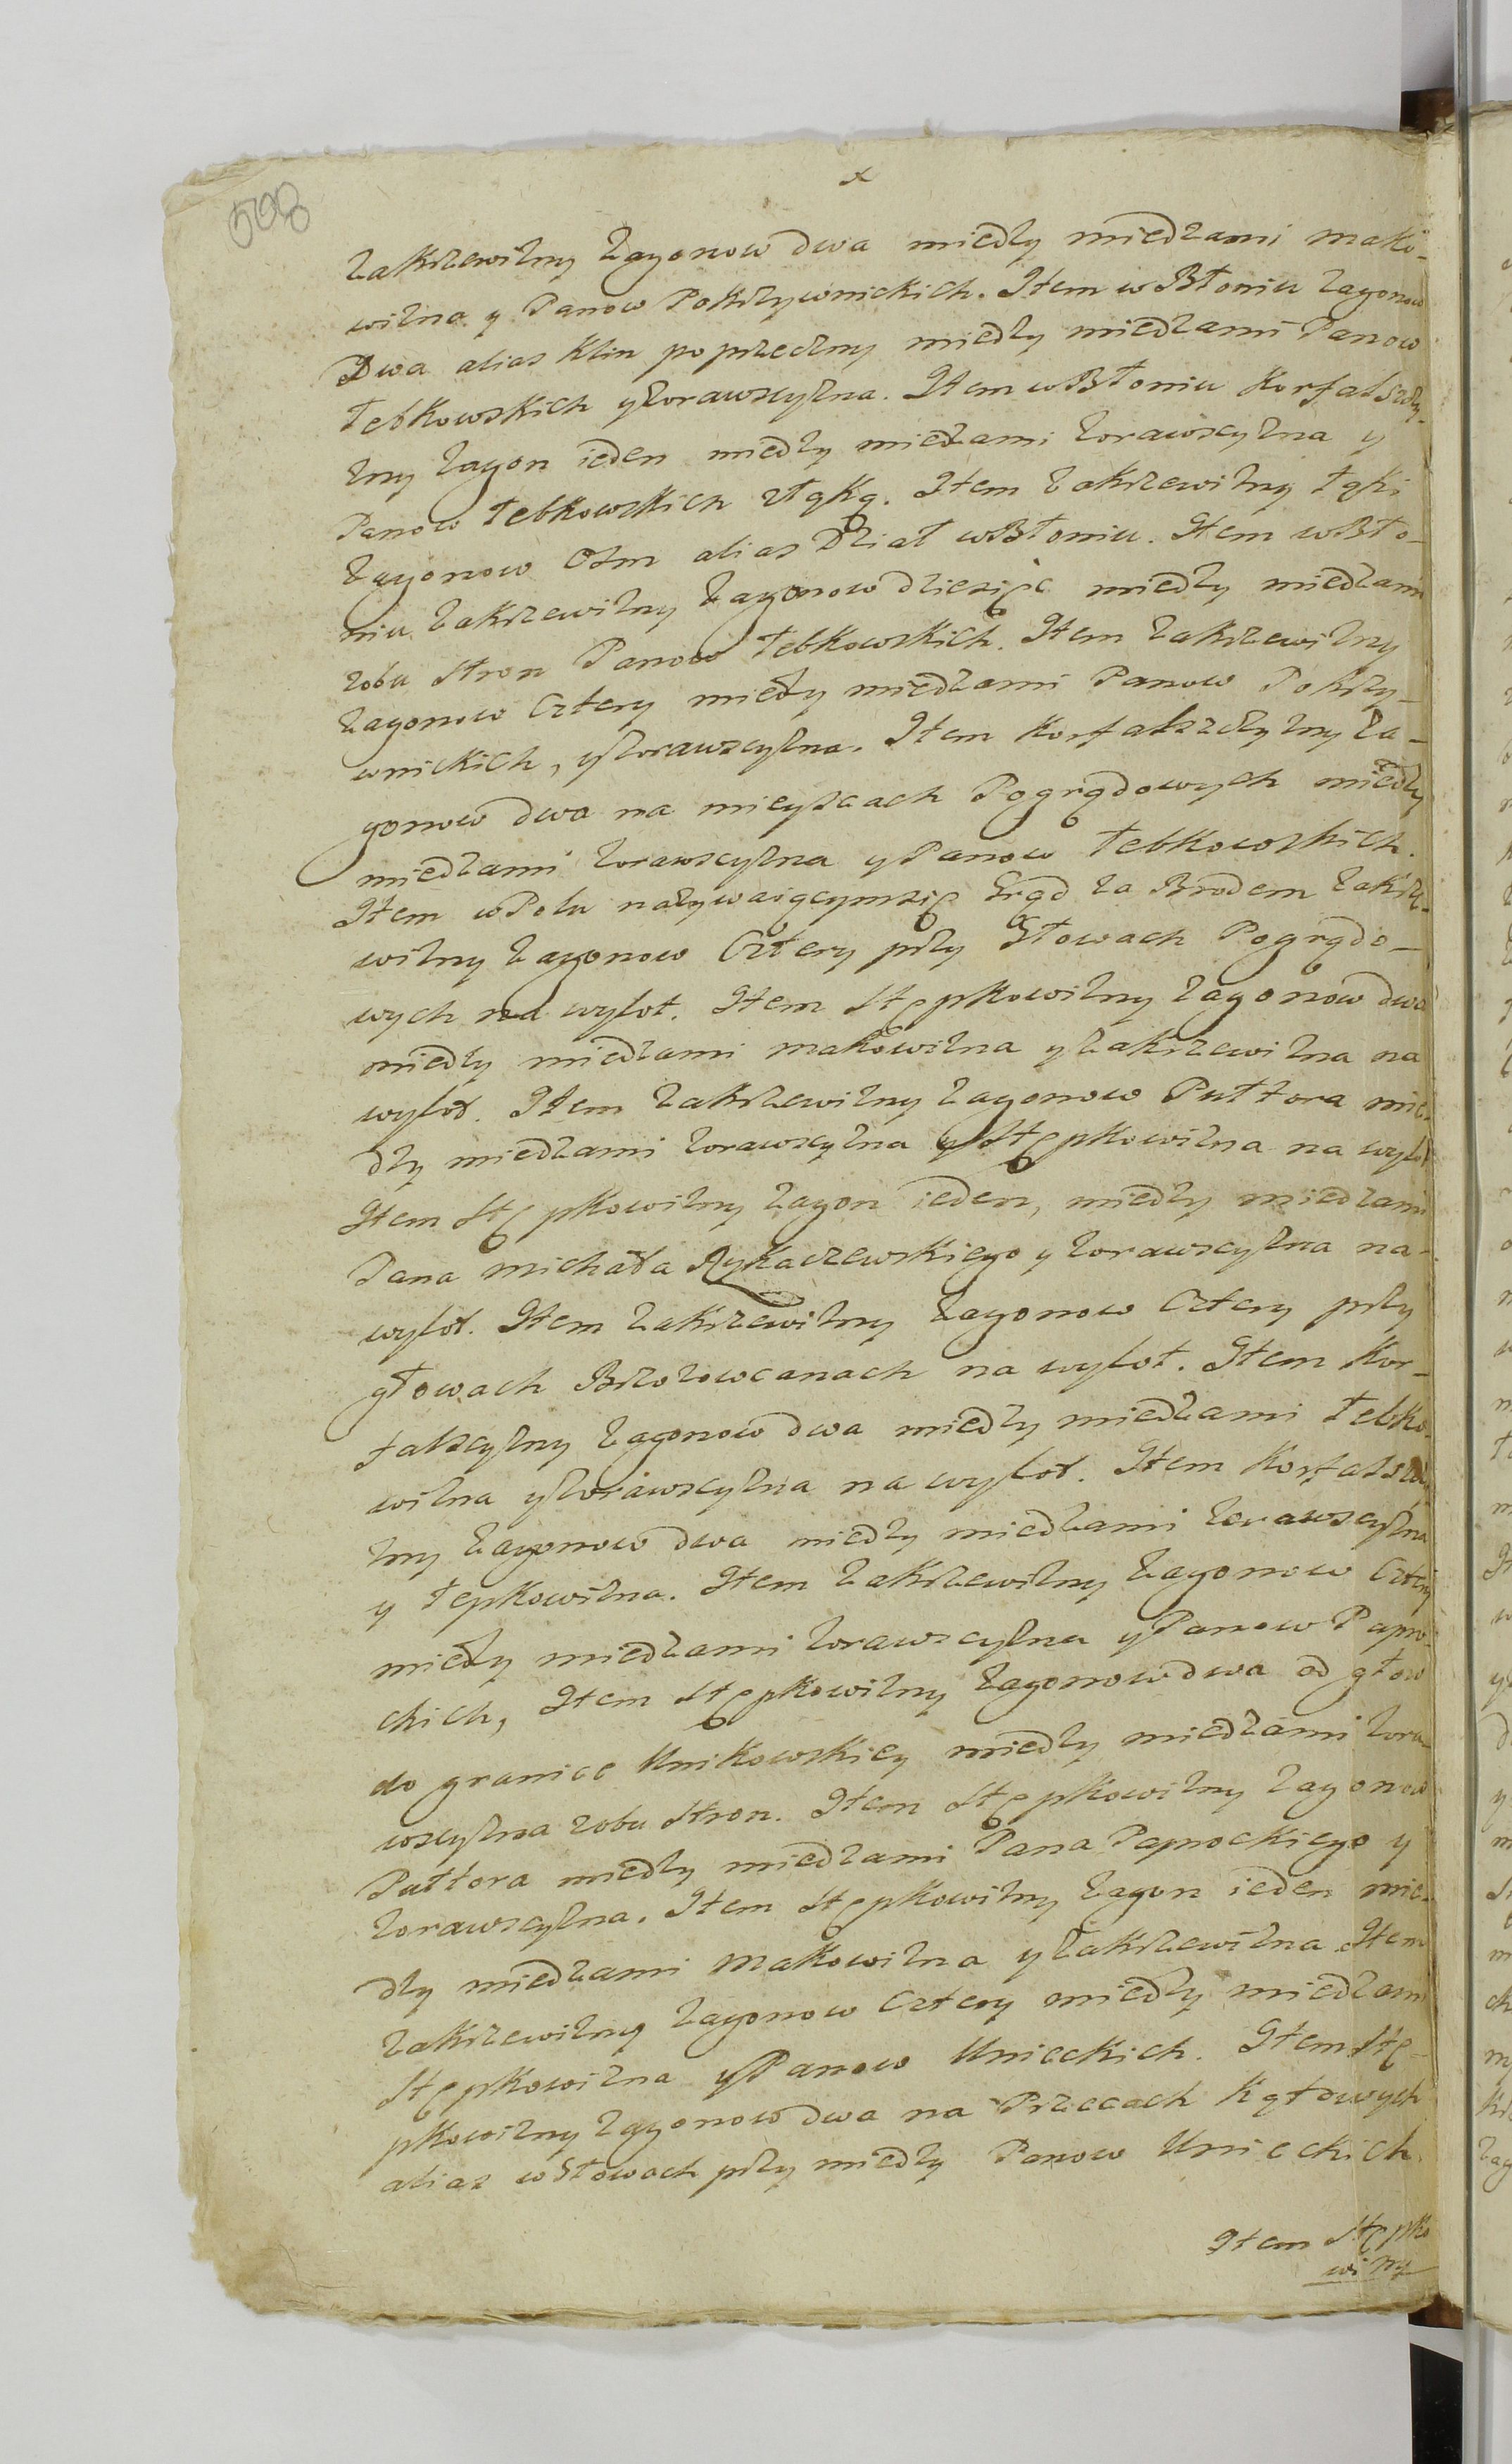 598
x
Zakrzewizny Zagonow dwa miedzy miedzami mako-
wizna y Panow Pokrzywnickich. Item w Błoniu Zagonow
Dwa alias Klin poprzeczny miedzy miedzami Panow
Łebkowskich y Zorawscyzna. Item w Błoniu Korfalszczy-
zny Zagon ieden miedzy miedzami Zorawscyzna y
Panow Łebkowskich z Łąką. Item Zakrzewizny Łąki
Zagonow Ozm alias Dział w Błoniu. Item w Bło-
niu Zakrzewizny Zagonow dziesięc miedzy miedzami
zobu stron Panow Łebkowskich. Item Zakrzewizny
Zagonow Cztery miedzy miedzami Panow Pokrzy-
wnickich, y Zorawscyzna. Item Korfalszczyzny Za-
gonow dwa na mieyscach Pogrądowych miedzy
miedzami Zorawscyzna y Panow Łebkowskich.
Item w Polu nazywaiącymsię Grąd za Brodem Zakrze-
wizny Zagonow Cztery przy Głowach Pogrądo-
wych na wylot. Item Stępkowizny Zagonow dwa
miedzy miedzami makowizna y Zakrzewizna na
wylot. Item Zakrzewizny Zagonow Pułtora mie-
dzy miedzami Zorawscyzna y Stępkowizna na wylot
Item Stępkowizny Zagon ieden, miedzy miedzami
Pana michała Rykaczewskiego y Zorawscyzna na-
wylot. Item Zakrzewizny Zagonow Cztery przy
głowach Brzozowcanach na wylot. Item Kor-
falscyzny Zagonow dwa miedzy miedzami Łebko-
wizna y Zorawscyzna na wylot. Item Korfalszczy
zny Zagonow dwa miedzy miedzami Zorawscyzna
y Łepkowizna. Item Zakrzewizny Zagonow Cztery
miedzy miedzami Zorawscyzna y Panow Papro-
ckich, Item Stępkowizny Zagonow dwa od głow
do granice Unikowskiey miedzy miedzami Zora-
wscyzna zobu stron. Item Stępkowizny Zagonow
Pułtora miedzy miedzami Pana Paprockiego y
Zorawscyzna. Item Stępkowizny Zagon ieden mie-
dzy miedzami Makowizna y Zakrzewizna. Item
Zakrzewizny Zagonow Cztery miedzy miedzami
Stępkowizna y Panow Unieckich. Item Stę-
pkowizny Zagonow dwa na Przecach Kątowych
alias w Głowach przy miedzy Panow Unieckich.
Item Stępko
wizny